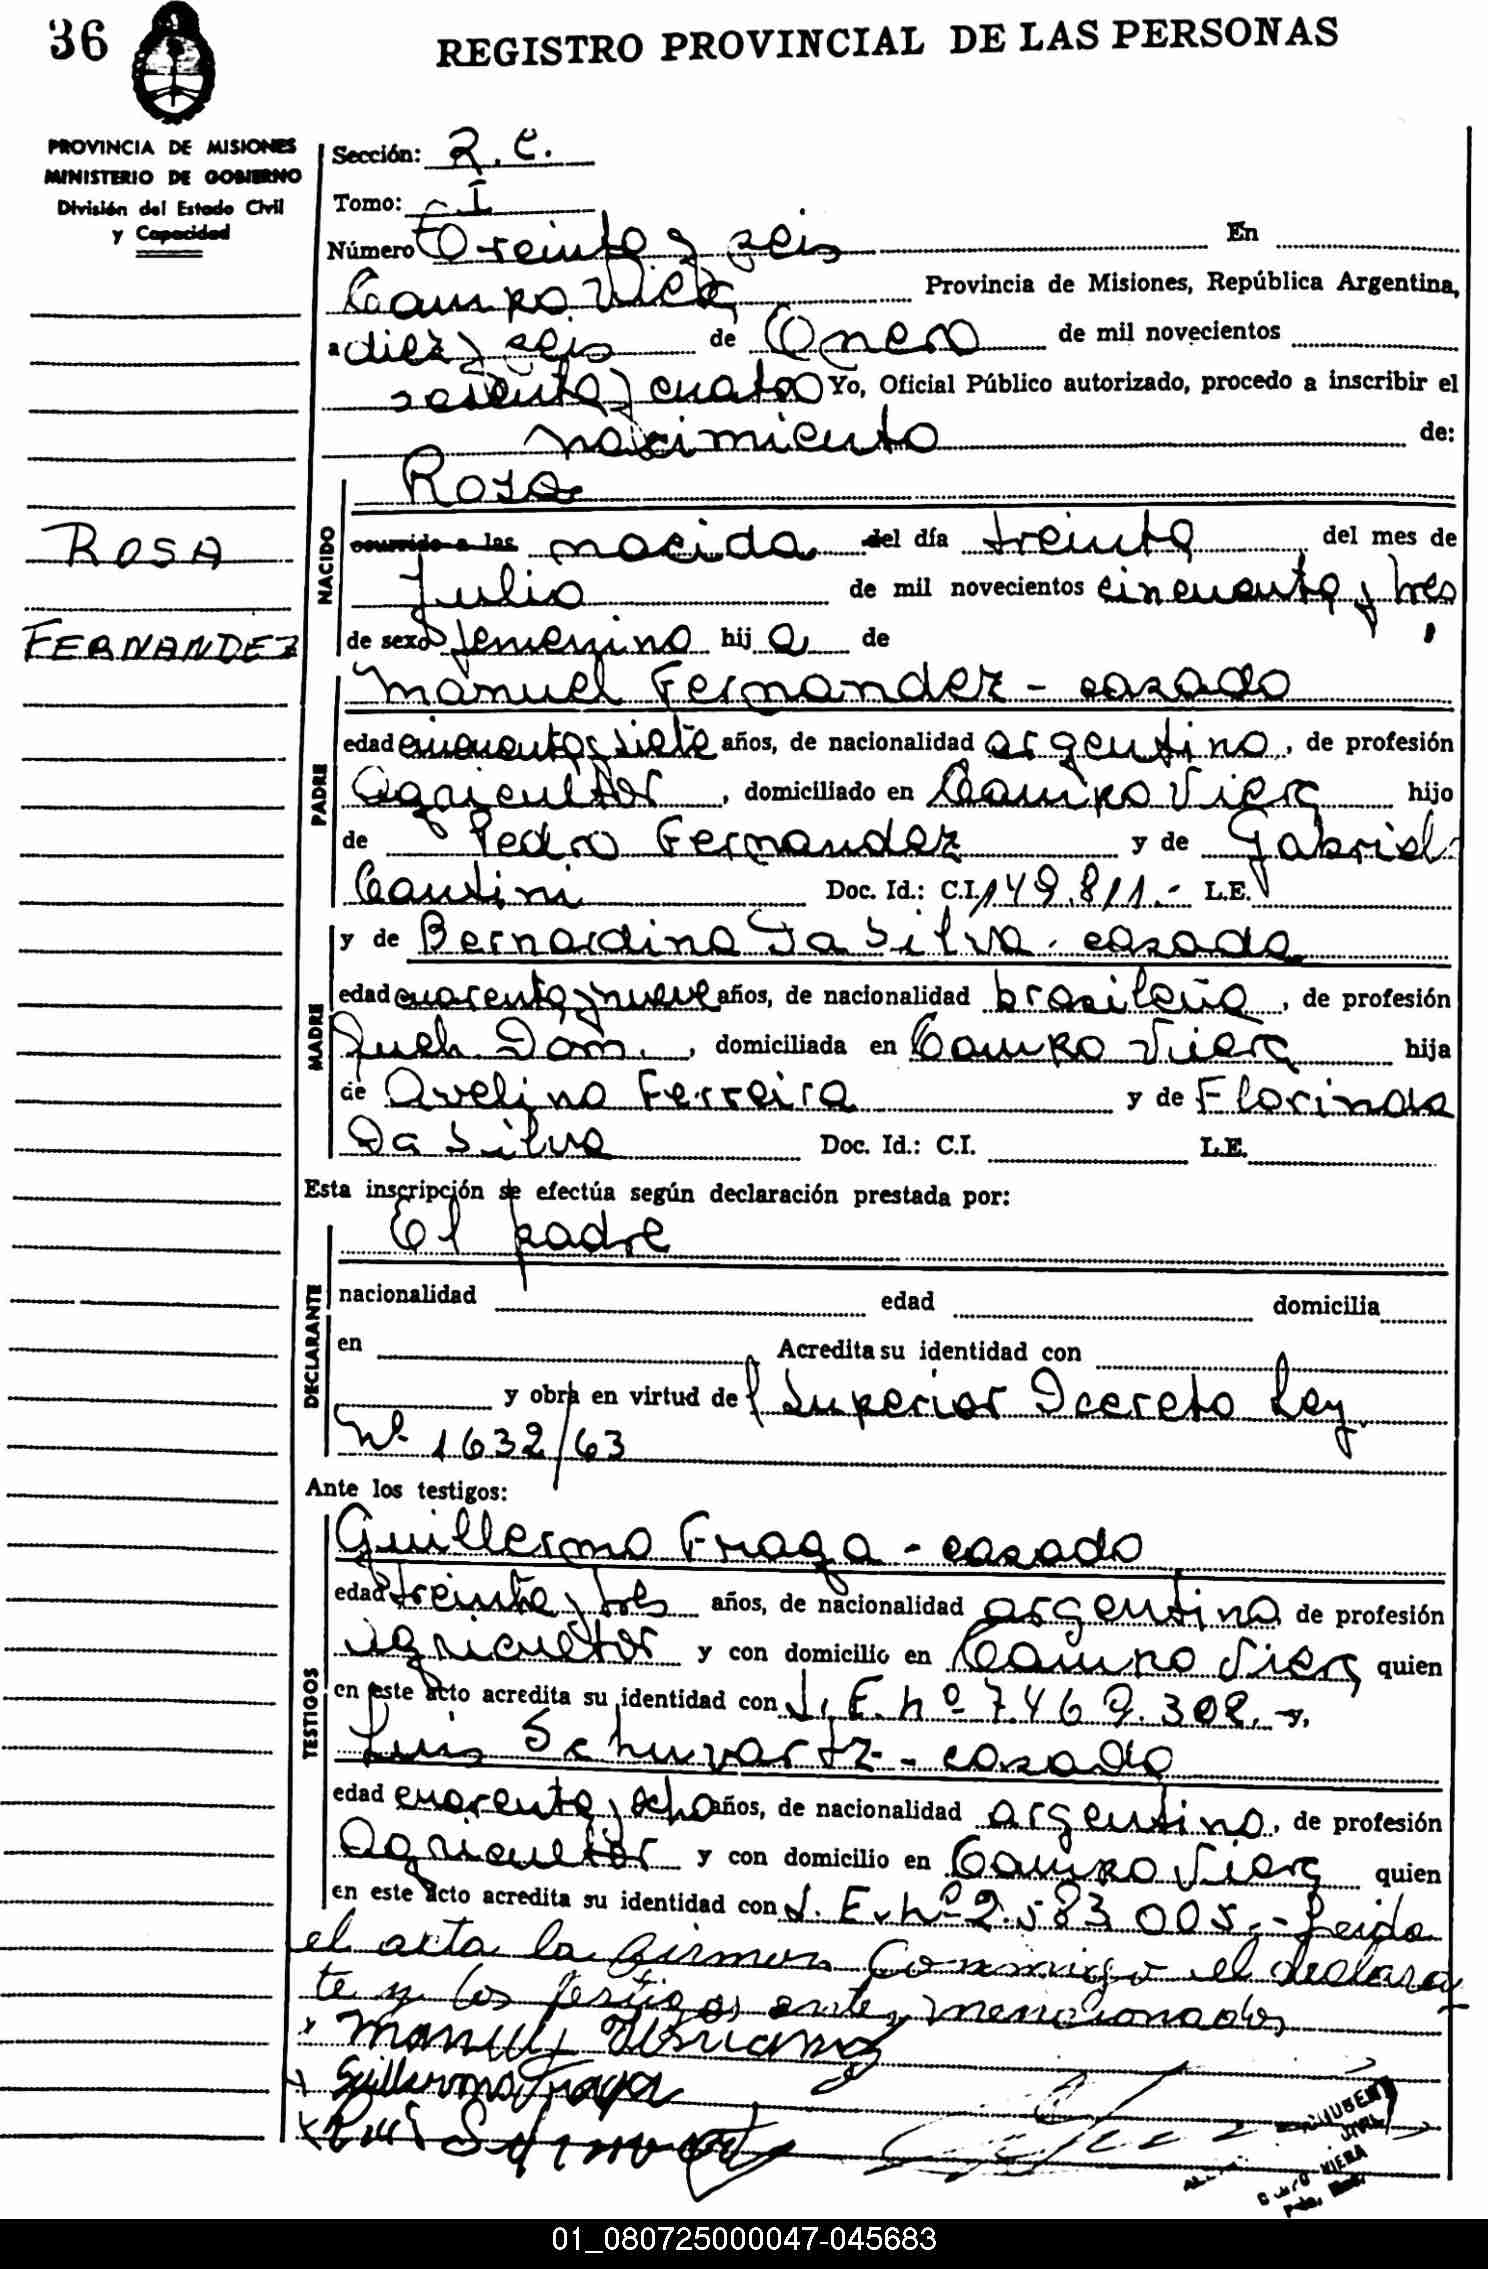 36
REGISTRO PROVINCIAL DE LAS PERSONAS
PROVINCIA DE MISIONES
MINISTERIO DE GOBIERNO
División del Estado Civil
y Capacidad
ROSA
FERNANDEZ
Sección: R.C.
Tomo: I
Número Treinta y seis En
Campo Viera Provincia de Misiones, República Argentina,
a diez y seis de Enero de mil novecientos
sesenta y cuatro Yo, Oficial Público autorizado, procedo a inscribir el
nacimiento de:
NACIDO
Rosa
ocurrido a las nacida del día treinta del mes de
Julio de mil novecientos cincuenta y tres
de sexo femenino hij a de
PADRE
Manuel Fernandez - casado
edad cincuenta y siete años, de nacionalidad argentino, de profesión
Agricultor, domiciliado en Campo Viera hijo
de Pedro Fernandez y de Gabriel
Cantini Doc. Id.: C.I. 149.811.- L.E.
MADRE
y de Bernardina Da Silva - casada
edad cuarenta y nueve años, de nacionalidad brasileña, de profesión
Queh. Dom., domiciliada en Campo Viera hija
de Avelino Ferreira y de Florinda
Da Silva Doc. Id.: C.I. L.E.
Esta inscripción se efectúa según declaración prestada por:
DECLARANTE
El padre
nacionalidad edad domicilia
en Acredita su identidad con
y obra en virtud del Superior Decreto Ley
Nº 1632/63
Ante los testigos:
TESTIGOS
Guillermo Fraga - casado
edad treinta y tres años, de nacionalidad argentino de profesión
agricultor y con domicilio en Campo Viera, quien
en este acto acredita su identidad con L.E. nº 7.469.302.- y,
Luis Schuvartz - casado
edad cuarenta y ocho años, de nacionalidad argentino, de profesión
Agricultor y con domicilio en Campo Viera quien
en este acto acredita su identidad con L.E. nº 2.583.005.- Leida
el acta la firman conmigo el declaran
te y los testigos antes mencionados
Guillermo Fraga
01_080725000047-045683